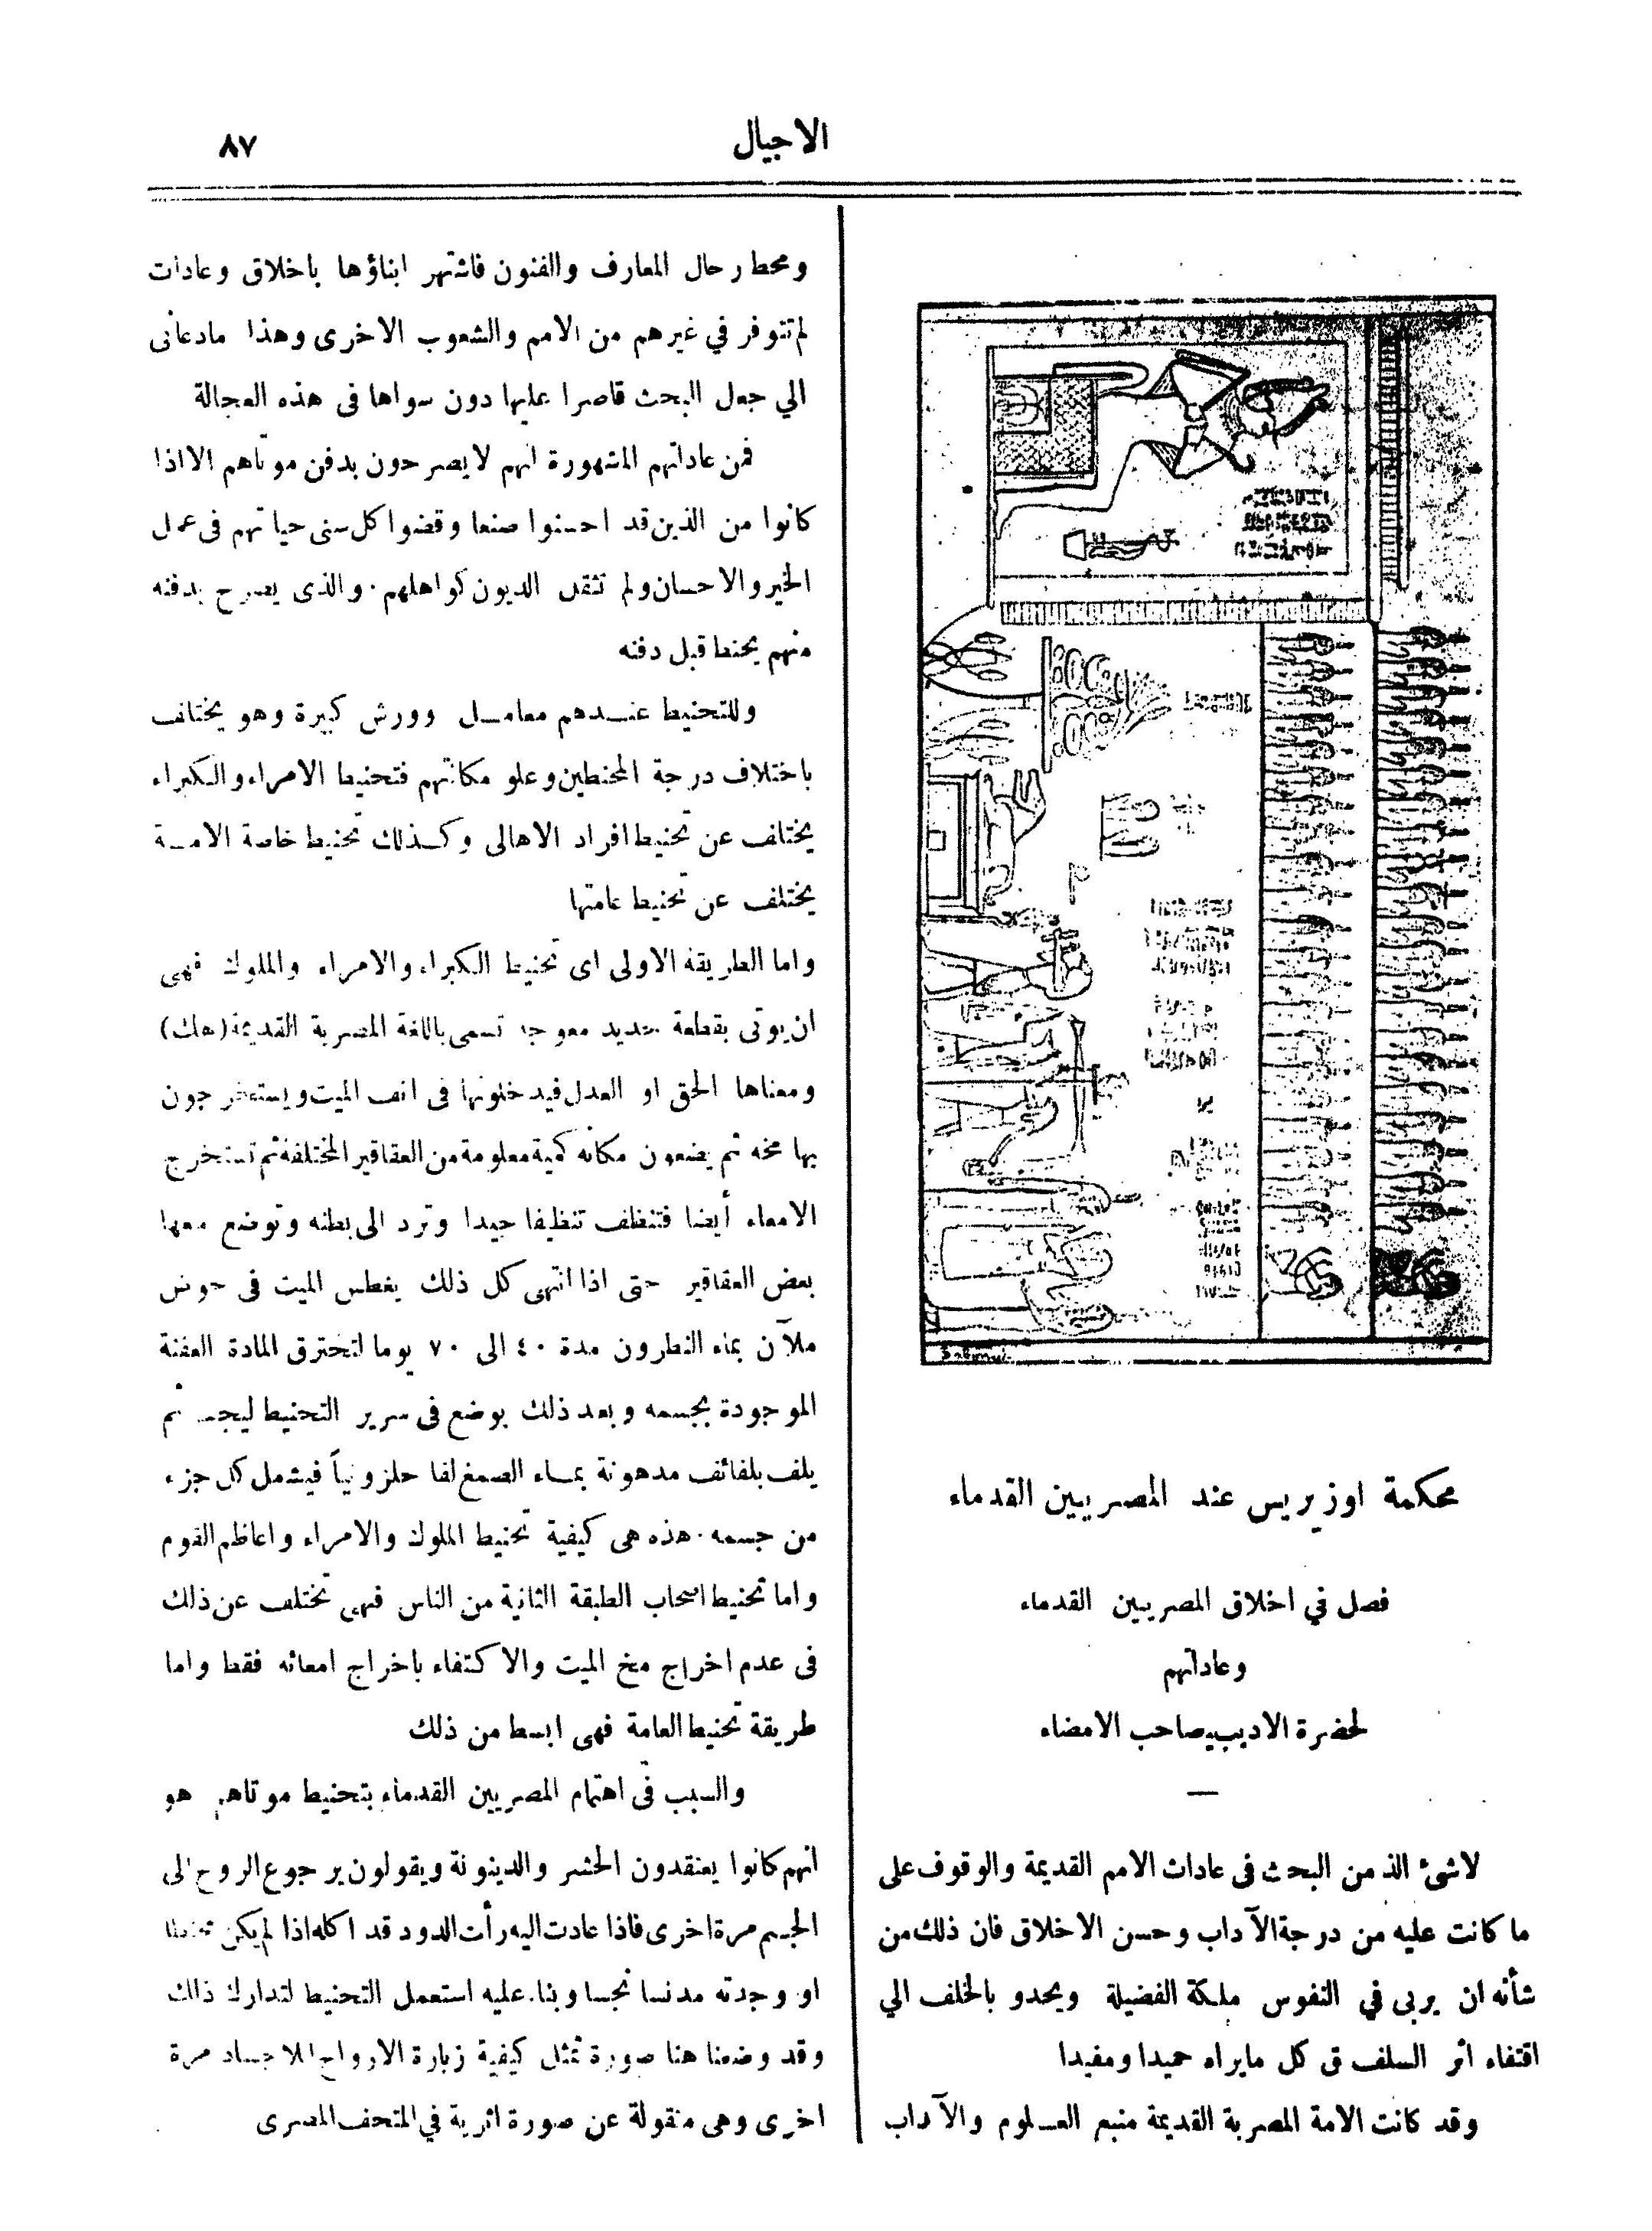 الاجيال
٨٧
محكمة اوزيريس عند المصريين القدماء
فصل في اخلاق المصريين القدماء
وعاداتهم
لحضرة الاديب صاحب الامضاء
لاشئ الذ من البحث فى عادات الامم القديمة والوقوف على
ما كانت عليه من درجة الآداب وحسن الاخلاق فان ذلك من
شأنه ان يربى في النفوس ملكة الفضيلة ويحدو بالخلف الي
اقتفاء اثر السلف فى كل مايراه حميدا ومفيدا
وقد كانت الامة المصرية القديمة منبع العلوم والآداب
ومحط رحال المعارف والفنون فاشتهر ابناؤها باخلاق وعادات
لم تتوفر في غيرهم من الامم والشعوب الاخرى وهذا مادعانى
الي جعل البحث قاصرا عليها دون سواها فى هذه العجالة
فمن عاداتهم المشهورة انهم لايصرحون بدفن موتاهم الا اذا
كانوا من الذين قد احسنوا صنعا وقضوا كل سنى حياتهم فى عمل
الخير والاحسان ولم تثقل الديون كواهلهم. والذى يصرح بدفنه
منهم يحنط قبل دفنه
وللتحنيط عندهم معامل وورش كبيرة وهو يختلف
باختلاف درجة المحنطين وعلو مكانتهم فتحنيط الامراء والكبراء
يختلف عن تحنيط افراد الاهالى وكذلك تحنيط خاصة الامة
يختلف عن تحنيط عامتها
واما الطريقة الاولى اى تحنيط الكبراء والامراء والملوك فهى
ان يوتى بقطعة حديد معوجة تسمى باللغة المصرية القديمة (هك)
ومعناها الحق او العدل فيدخلونها فى انف الميت ويستخرجون
بها مخه ثم يضعون مكانه كمية معلومة من العقاقير المختلفة ثم تستخرج
الامعاء أيضا فتنظف تنظيفا جيدا وترد الى بطنه وتوضع معها
بعض العقاقير حتى اذا انتهى كل ذلك يغطس الميت فى حوض
ملآن بماء النطرون مدة ٤٠ الى ٧٠ يوما لتحترق المادة العفنة
الموجودة بجسمه وبعد ذلك يوضع فى سرير التحنيط ليجف ثم
يلف بلفائف مدهونة بماء الصمغ لفا حلزونياً فيشمل كل جزء
من جسمه. هذه هى كيفية تحنيط الملوك والامراء واعاظم القوم
واما تحنيط اصحاب الطبقة الثانية من الناس فهى تختلف عن ذلك
فى عدم اخراج مخ الميت والاكتفاء باخراج امعائه فقط واما
طريقة تحنيط العامة فهى ابسط من ذلك
والسبب فى اهتمام المصريين القدماء بتحنيط موتاهم هو
انهم كانوا يعتقدون الحشر والدينونة ويقولون برجوع الروح الى
الجسم مرة اخرى فاذا عادت اليه رأت الدود قد اكله اذا لم يكن محنطا
او وجدته مدنسا نجسا وبناء عليه استعمل التحنيط لتدارك ذلك
وقد وضعنا هنا صورة تمثل كيفية زيارة الارواح للاجساد مرة
اخرى وهى منقولة عن صورة اثرية في المتحف المصرى